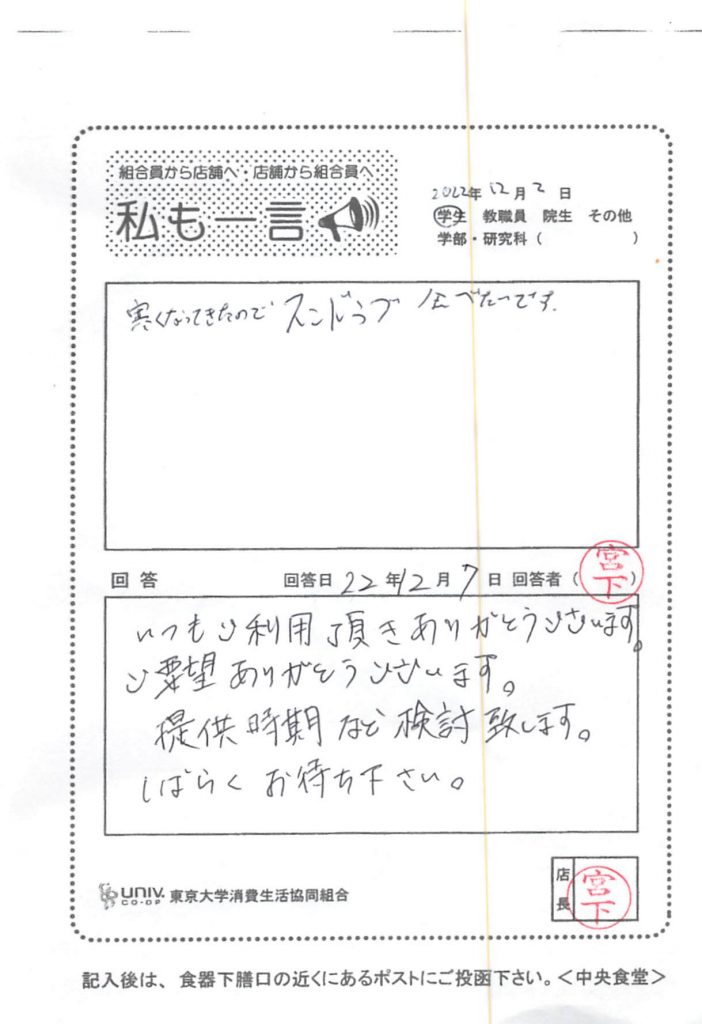 組合員から店舗へ・店舗から組合員へ
私も一言
2022年12月2日
学生 教職員 院生 その他
学部・研究科( )
寒くなってきたので スンドゥブ 食べたいです.
回答 回答日 22年12月7日 回答者(宮下)
いつもご利用頂きありがとうございます。
ご要望ありがとうございます。
提供時期など検討致します。
しばらくお待ち下さい。
店長 宮下
UNIV. CO-OP 東京大学消費生活協同組合
記入後は、食器下膳口の近くにあるポストにご投函下さい。<中央食堂>